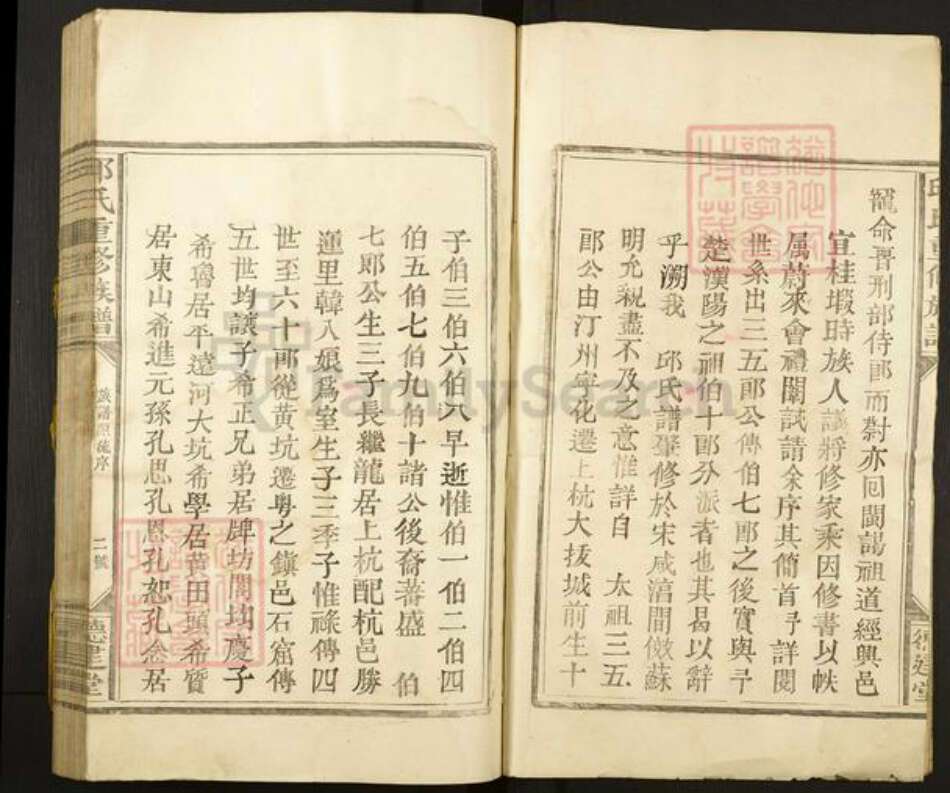 寵命晋刑部侍郎而尉亦囘閩謁祖道經興邑
宜桂嘏時族人議將修家乘因修書以帙
属蔚來會禮闈試請余序其簡首予詳閱
世系出三五郎公傳伯七郎之後實與予
楚漢陽之祖伯十郎分派者也其曷以辭
乎溯我 邱氏譜肇修於宋咸淳間倣蘇
明允親盡不及之意惟詳自 太祖三五
郎公由汀州寧化遷上杭大拔城前生十
子伯三伯六伯八早逝惟伯一伯二伯四
伯五伯七伯九伯十諸公後裔蕃盛 伯
七郎公生三子長繼龍居上杭配杭邑勝
運里韓八娘爲室生子三季子惟祿傳四
世至六十郎從黄坑遷粤之鎭邑石窟傳
五世均讓子希正兄弟居牌坊閣均慶子
希魯居平遠河大坑希學居黄田頭希賢
居東山希進元孫孔思孔恩孔恕孔念居
邱氏重修族譜
族譜原總序
二號
德
堂
FamilySearch